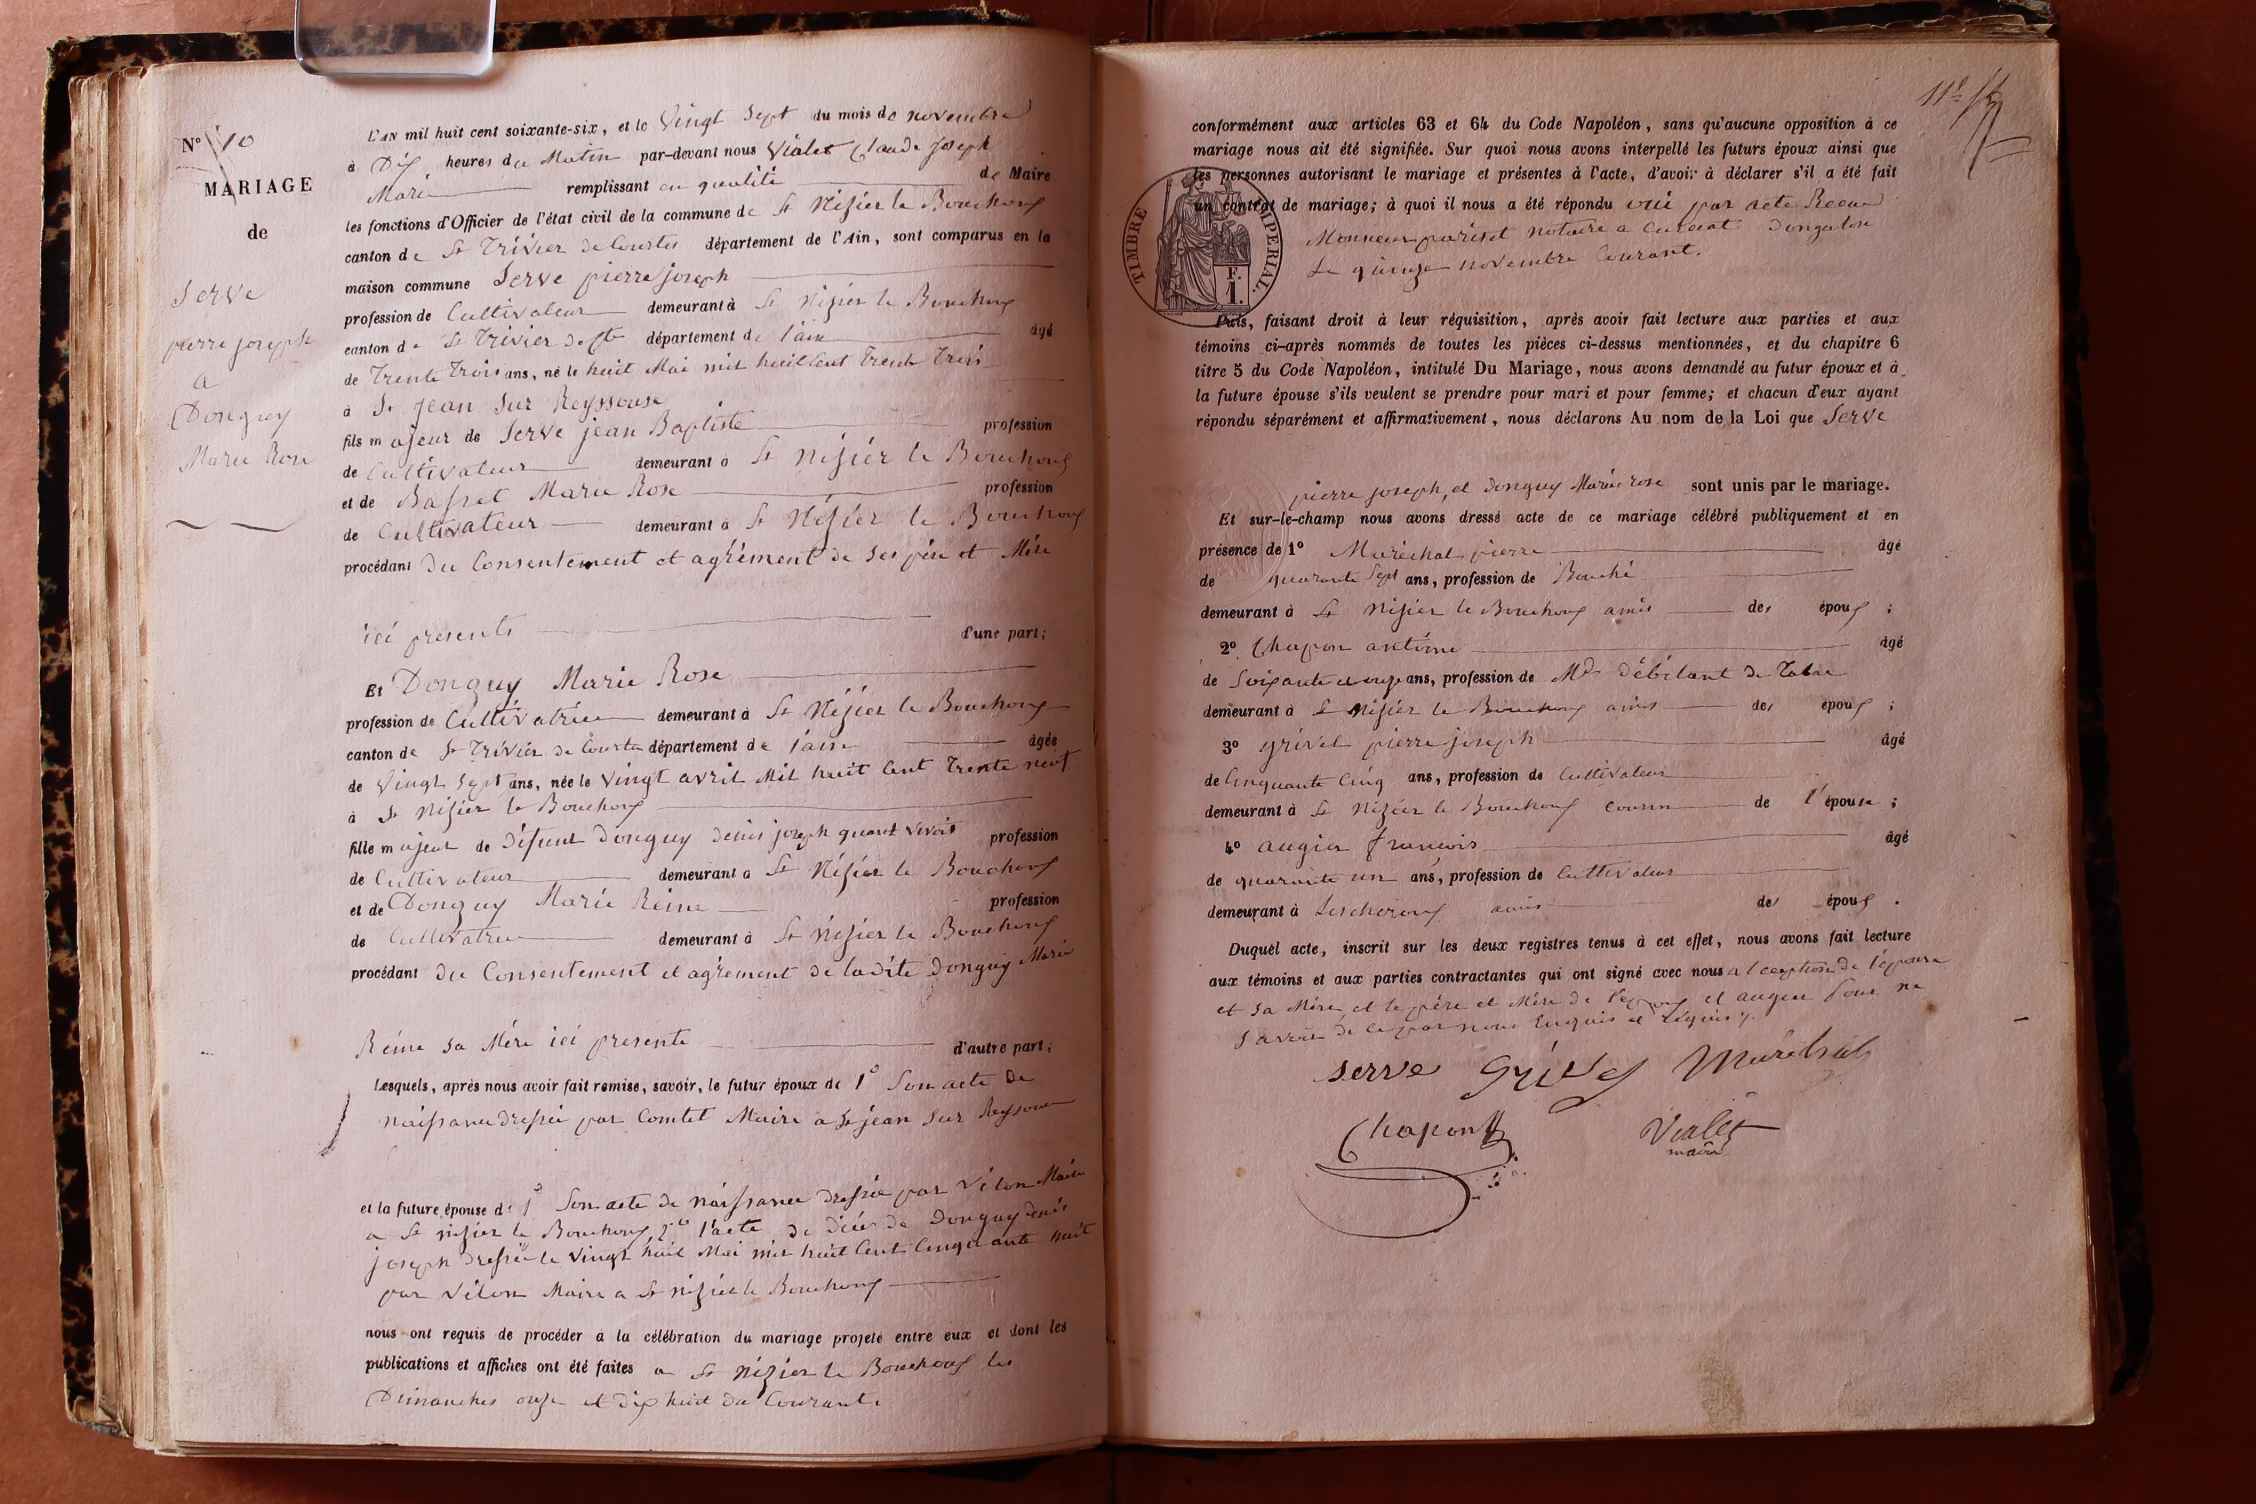 N° 10
MARIAGE
de
Serve
pierre joseph
a
Donguy
Marie Rose
L'AN mil huit cent soixante-six, et le Vingt Sept du mois de novembre
à Dix heures du Matin par-devant nous Vialet Claude Joseph
Maire remplissant en qualité de Maire
les fonctions d'Officier de l'état civil de la commune de St Nizier le Bouchoux
canton de St Trivier de Courtes département de l'Ain, sont comparus en la
maison commune Serve pierre joseph
profession de Cultivateur demeurant à St Nizier le Bouchoux
canton de St Trivier de Cte département de l'ain âgé
de Trente Trois ans, né le huit Mai mil huit Cent Trente Trois
à St Jean Sur Reyssouse
fils majeur de Serve jean Baptiste profession
de Cultivateur demeurant à St Nizier le Bouchoux
et de Basset Marie Rose profession
de Cultivateur demeurant à St Nizier le Bouchoux
procédant du Consentement et agrément de ses père et Mère
ici presents d'une part;
Et Donguy Marie Rose
profession de Cultivatrice demeurant à St Nizier le Bouchoux
canton de St Trivier de Courtes département de l'ain âgée
de Vingt Sept ans, née le Vingt avril Mil huit Cent Trente neuf
à St Nizier le Bouchoux
fille majeur de Défunt Donguy Denis joseph quant vivait profession
de Cultivateur demeurant à St Nizier le Bouchoux
et de Donguy Marie Reine profession
de Cultivatrice demeurant à St Nizier le Bouchoux
procédant du Consentement et agrément de ladite Donguy Marie
Reine sa Mère ici presente d'autre part;
Lesquels, après nous avoir fait remise, savoir, le futur époux de 1° Son acte de
naissance dressée par Comtet Maire a St jean sur Reyssouse
et la future épouse de 1° Son acte de naissance dressée par Vélon Maire
a St nizier le Bouchoux, 2° l'acte de décès de Donguy denis
joseph dressée le Vingt huit Mai mil huit Cent Cinquante huit
par Vélon Maire a St nizier le Bouchoux
nous ont requis de procéder à la célébration du mariage projeté entre eux et dont les
publications et affiches ont été faites a St Nizier le Bouchoux les
Dimanches onze et dix huit du Courant.
conformément aux articles 63 et 64 du Code Napoléon, sans qu'aucune opposition à ce
mariage nous ait été signifiée. Sur quoi nous avons interpellé les futurs époux ainsi que
les personnes autorisant le mariage et présentes à l'acte, d'avoir à déclarer s'il a été fait
un contrat de mariage; à quoi il nous a été répondu oui par acte Recu
Monsieur pariset notaire a Curciat Dongalon
Le quinze novembre Courant.
TIMBRE IMPERIAL
F.
1.
Puis, faisant droit à leur réquisition, après avoir fait lecture aux parties et aux
témoins ci-après nommés de toutes les pièces ci-dessus mentionnées, et du chapitre 6
titre 5 du Code Napoléon, intitulé Du Mariage, nous avons demandé au futur époux et à
la future épouse s'ils veulent se prendre pour mari et pour femme; et chacun d'eux ayant
répondu séparément et affirmativement, nous déclarons Au nom de la Loi que Serve
pierre joseph, et Donguy Marie rose sont unis par le mariage.
Et sur-le-champ nous avons dressé acte de ce mariage célébré publiquement et en
présence de 1° Maréchal pierre âgé
de quarante Sept ans, profession de Bouché
demeurant à St Nizier le Bouchoux amis des époux ;
2° Chapon antoine âgé
de Soixante et onze ans, profession de Md Débitant de Tabac
demeurant à St Nizier le Bouchoux amis des époux ;
3° grivel pierre joseph âgé
de Cinquante Cinq ans, profession de Cultivateur
demeurant à St Nizier le Bouchoux cousin de l'épouse ;
4° augier francois âgé
de quarante un ans, profession de Cultivateur
demeurant à Lescheroux amis des époux .
Duquel acte, inscrit sur les deux registres tenus à cet effet, nous avons fait lecture
aux témoins et aux parties contractantes qui ont signé avec nous a l'exeption de l'epouse
et sa Mère et le père et Mère de l'epoux et augier pour ne
savoir de ce par nous Enquis et requis.
serve Grivel Maréchal
Chapon Vialet
maire